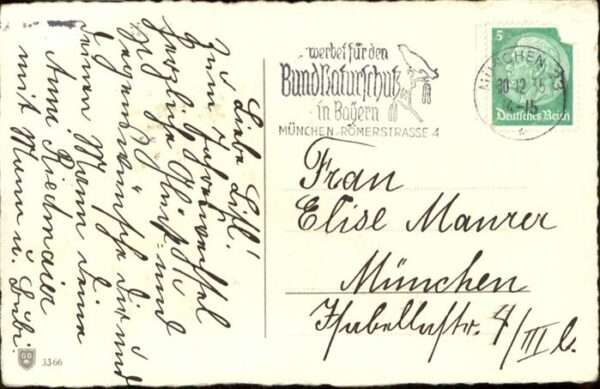 Liebe Lisl!
Zum Jahreswechsel
herzliche Glück- und
Segenswünsche Dir und
Deinem Mann
Anna Riedmaier
mit Mann u.
3366
werbet für den
Bund Naturschutz
in Bayern
MÜNCHEN, RÖMERSTRASSE 4
MÜNCHEN
30.12.
5
Deutsches Reich
Frau
Elise Maurer
München
Isabellastr. 4/III l.